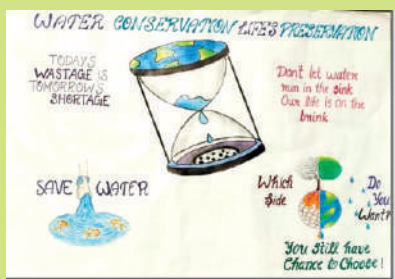 WATER CONSERVATION LIFE'S PRESERVATION
TODAYS
WASTAGE IS
TOMORROWS
SHORTAGE
Don't let water
run in the sink
Our life is on the
brink
SAVE WATER
Which
Side
Do
You
Want?
You Still have
Chance to Choose!